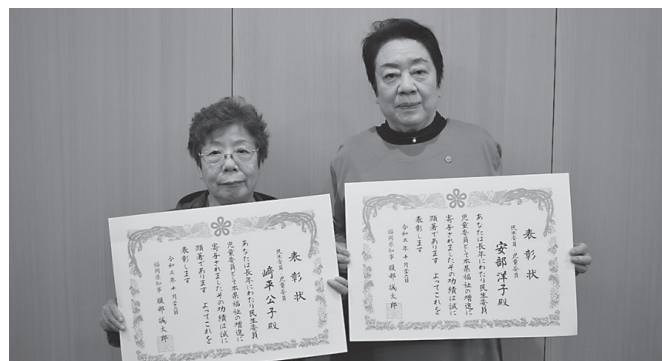 表彰状
民生委員 児童委員
﨑平公子殿
あなたは長年にわたり民生委員
児童委員として本県福祉の増進に
寄与されましたその功績は誠に
顕著であります よってこれを
表彰します
令和五年十月
福岡県知事 服部誠太郎
表彰状
民生委員 児童委員
安部洋子殿
あなたは長年にわたり民生委員
児童委員として本県福祉の増進に
寄与されましたその功績は誠に
顕著であります よってこれを
表彰します
令和五年十月
福岡県知事 服部誠太郎